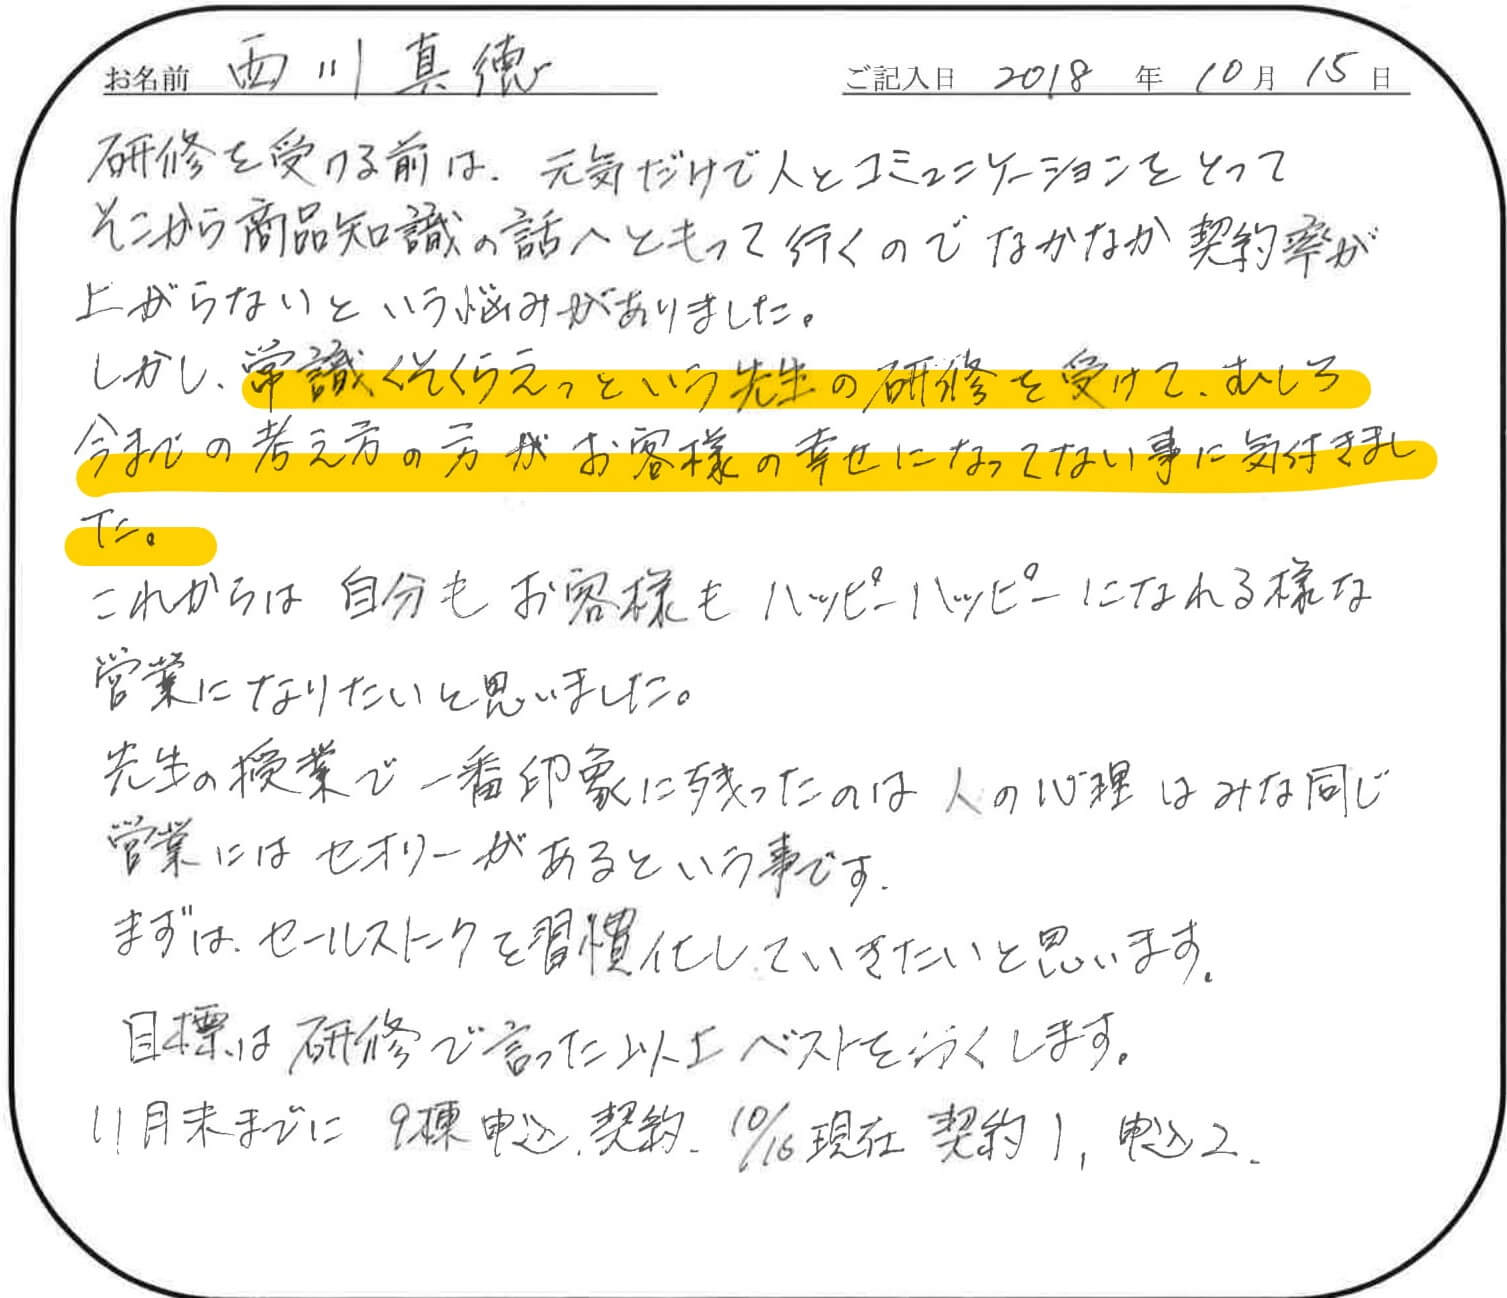 お名前 西川真徳 ご記入日 2018年10月15日
研修を受ける前は、元気だけで人とコミュニケーションをとって
そこから商品知識の話へともって行くのでなかなか契約率が
上がらないという悩みがありました。
しかし、常識くそくらえっという先生の研修を受けて、むしろ
今までの考え方の方がお客様の幸せになってない事に気付きまし
た。
これからは自分もお客様もハッピーハッピーになれる様な
営業になりたいと思いました。
先生の授業で一番印象に残ったのは人の心理はみな同じ
営業にはセオリーがあるという事です.
まずは、セールストークを習慣化していきたいと思います。
目標は研修で言った以上ベストを尽くします。
11月末までに 9棟申込、契約. 10/16現在 契約1, 申込2.